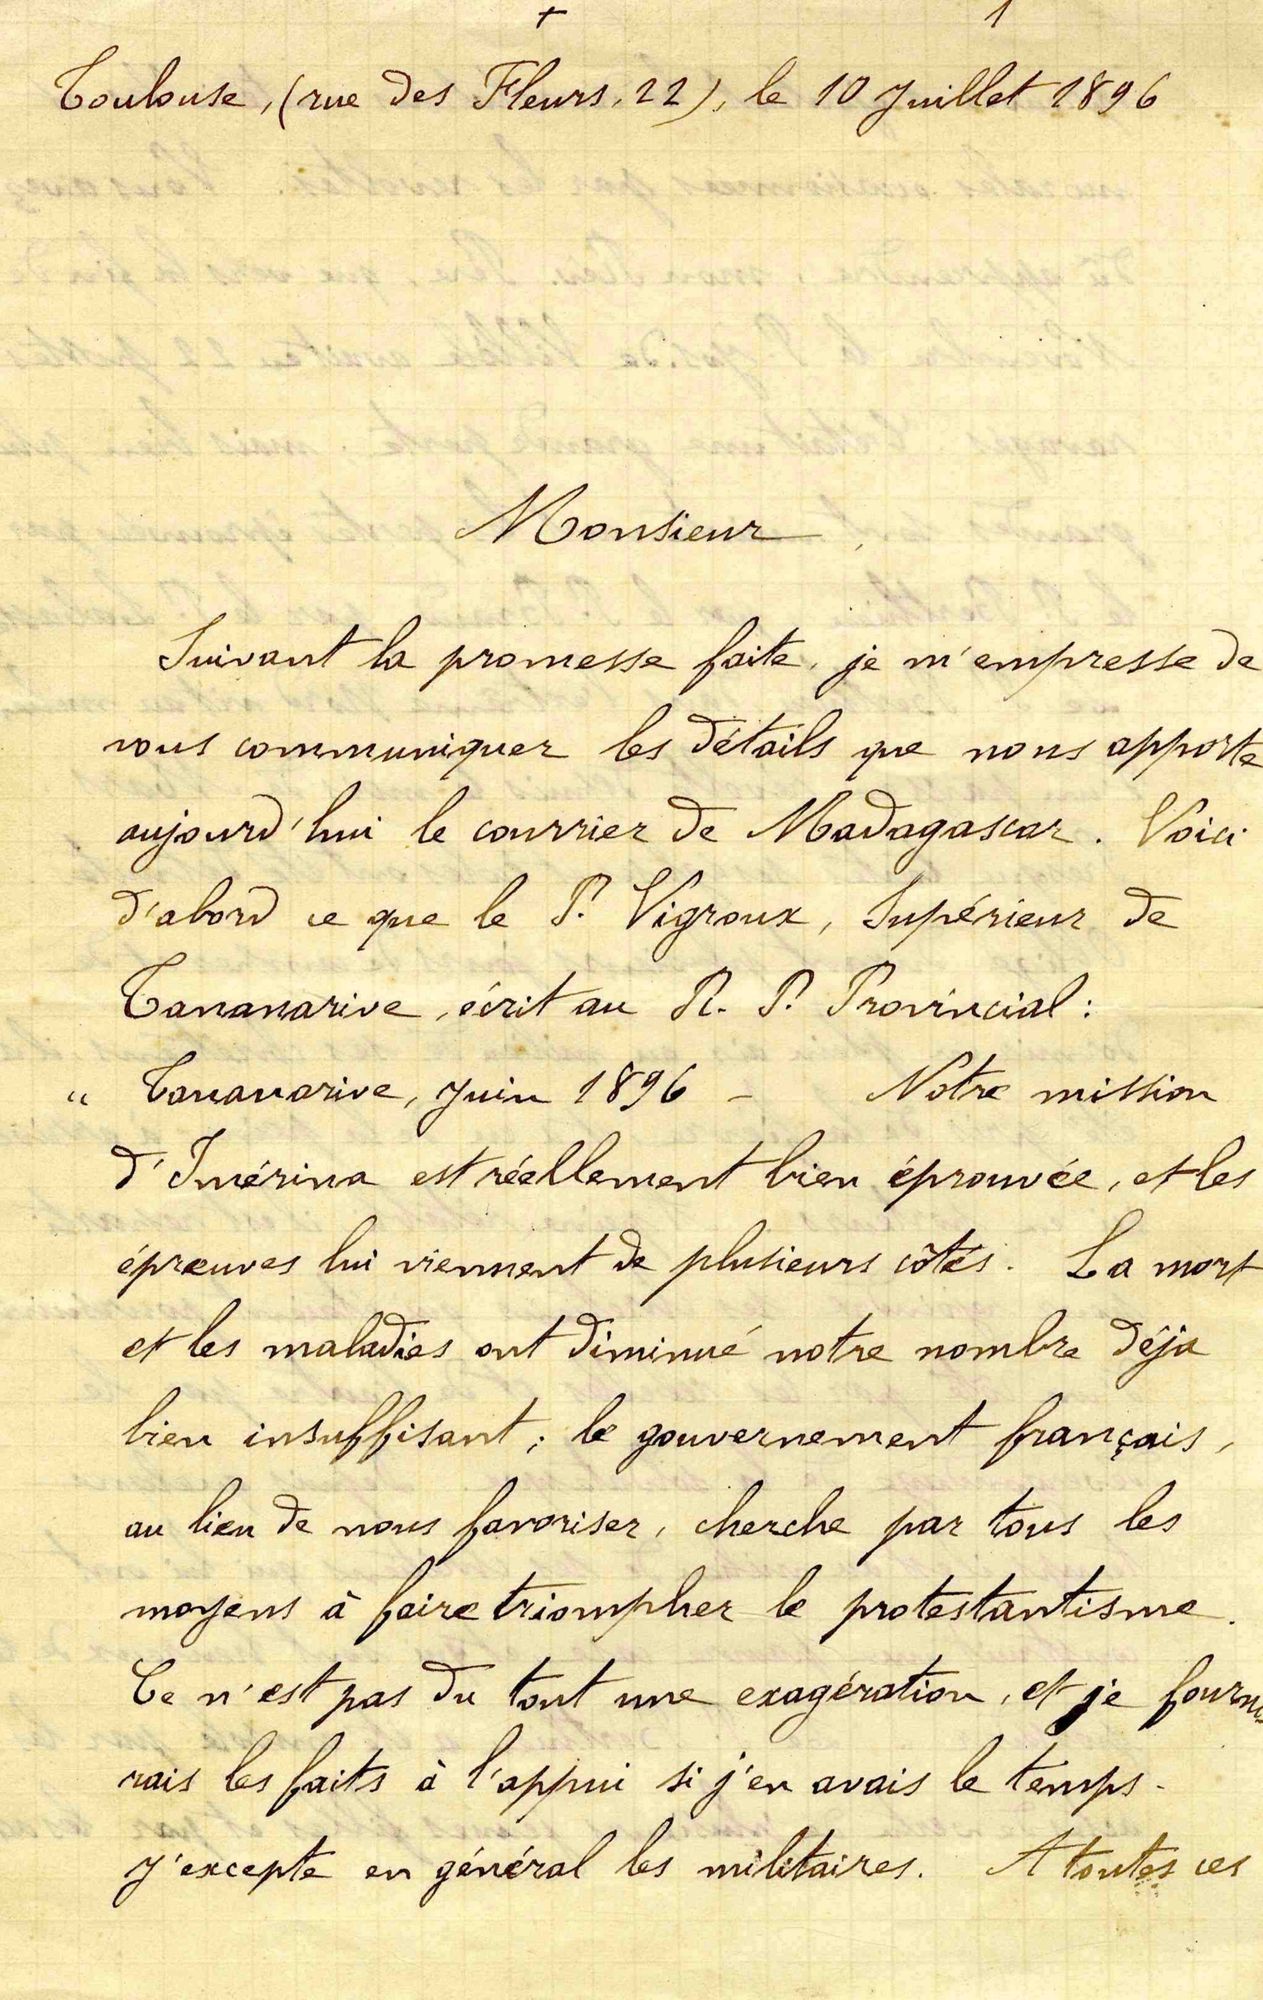 + 1
Toulouse, (rue des Fleurs, 22), le 10 Juillet 1896
Monsieur,
Suivant la promesse faite, je m'empresse de
vous communiquer les détails que nous apporte
aujourd'hui le courrier de Madagascar. Voici
d'abord ce que le P. Vigroux, Supérieur de
Tananarive, écrit au R. P. Provincial :
" Tananarive, Juin 1896 – Notre mission
d'Imérina est réellement bien éprouvée, et les
épreuves lui viennent de plusieurs côtés. La mort
et les maladies ont diminué notre nombre déja
bien insuffisant ; le gouvernement français,
au lieu de nous favoriser, cherche par tous les
moyens à faire triompher le protestantisme.
Ce n'est pas du tout une exagération, et je fourni
rais les faits à l'appui si j'en avais le temps.
J'excepte en général les militaires. A toutes ces